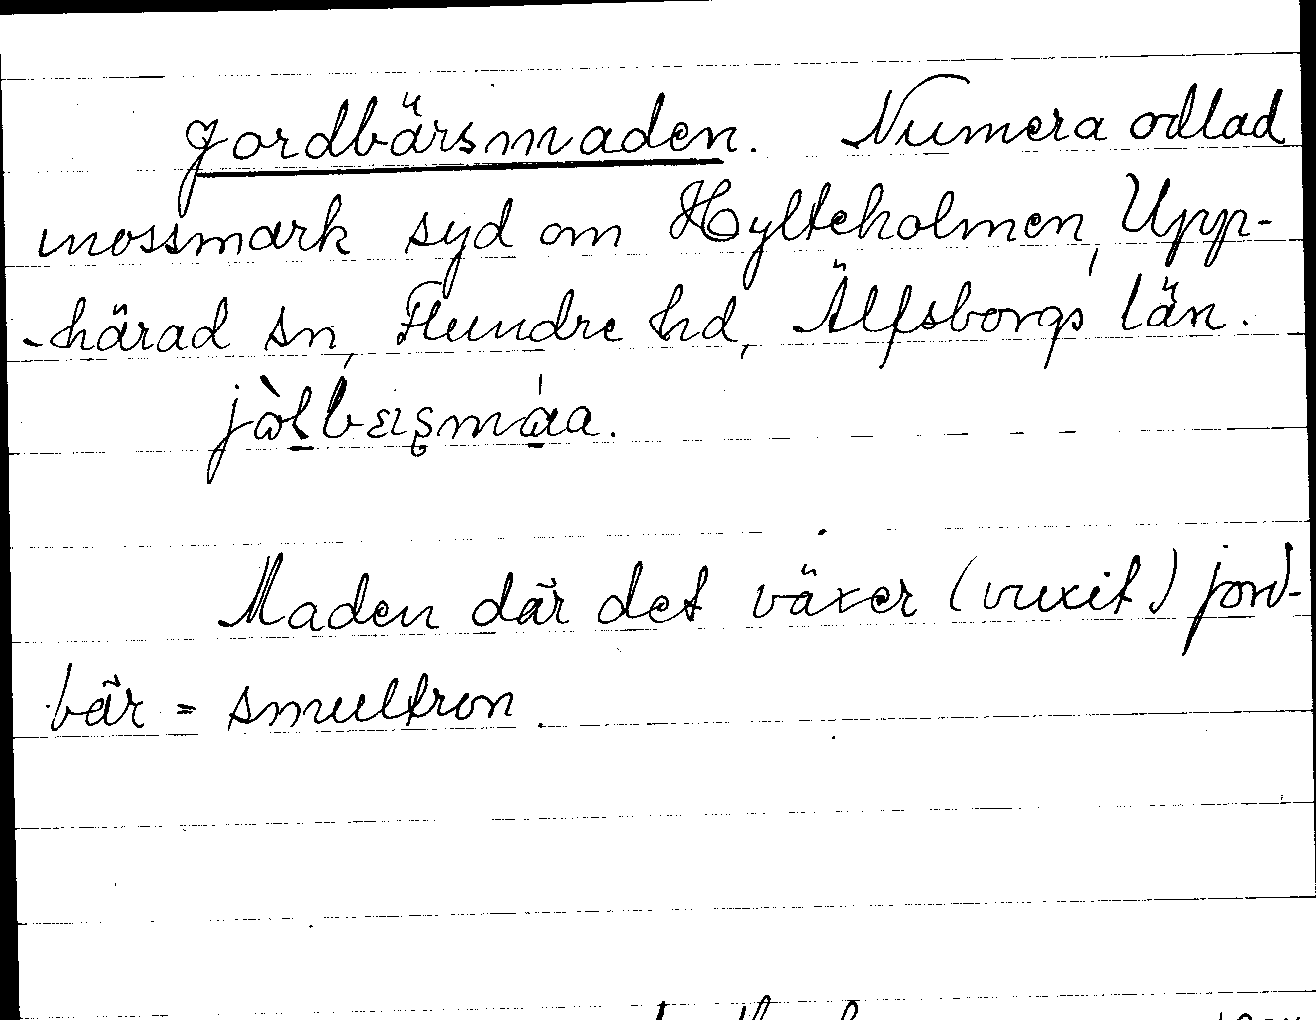 Jordbärsmaden. Numera odlad
mossmark syd om Hylteholmen, Upp-
-härad sn, Flundre hd, Älfsborgs län.
Maden där det växer (vuxit) jord-
bär = smultron.